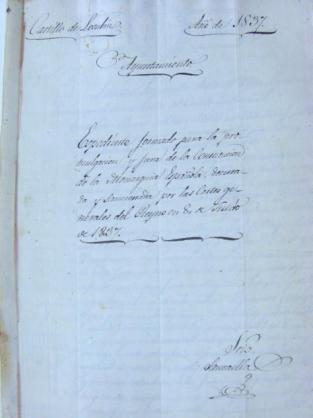 Castillo de Locubin Año de 1837
Ayuntamiento
Expediente formado para la pro
mulgacion y jura de la Constitucion
de la Monarquia Española, decreta
da y sancionada por las Cortes ge
nerales del Reyno en de
de 1837.